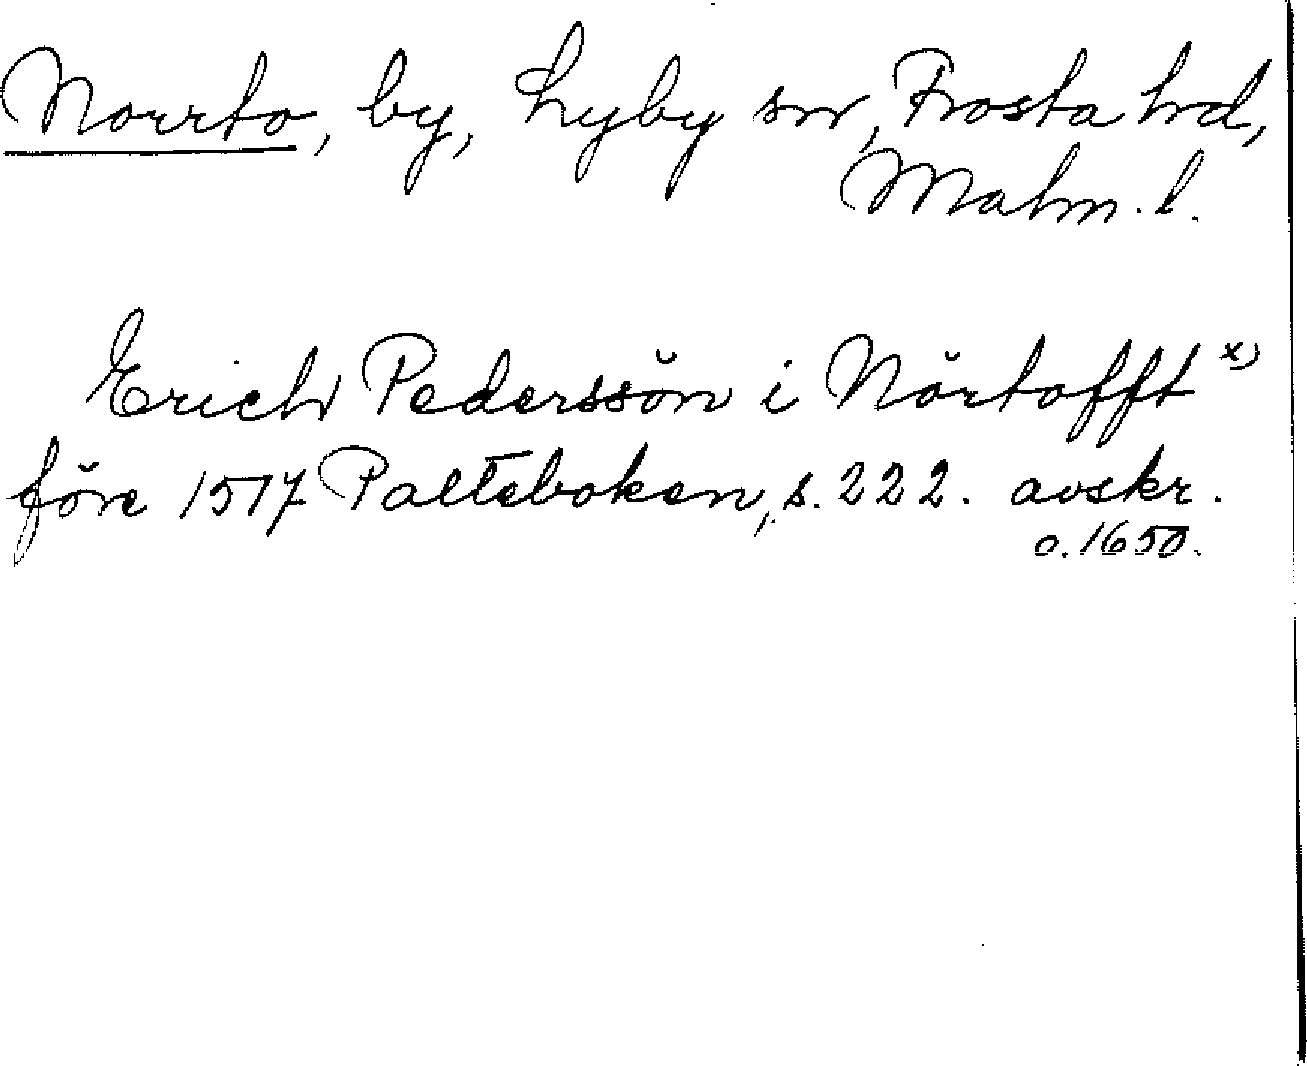 Norrto, by, Lyby sn, Frosta hrd,
Malm. l.
Erich Pederssön i Nörtofft x)
före 1517 Palteboken, s. 222. avskr.
o. 1650.